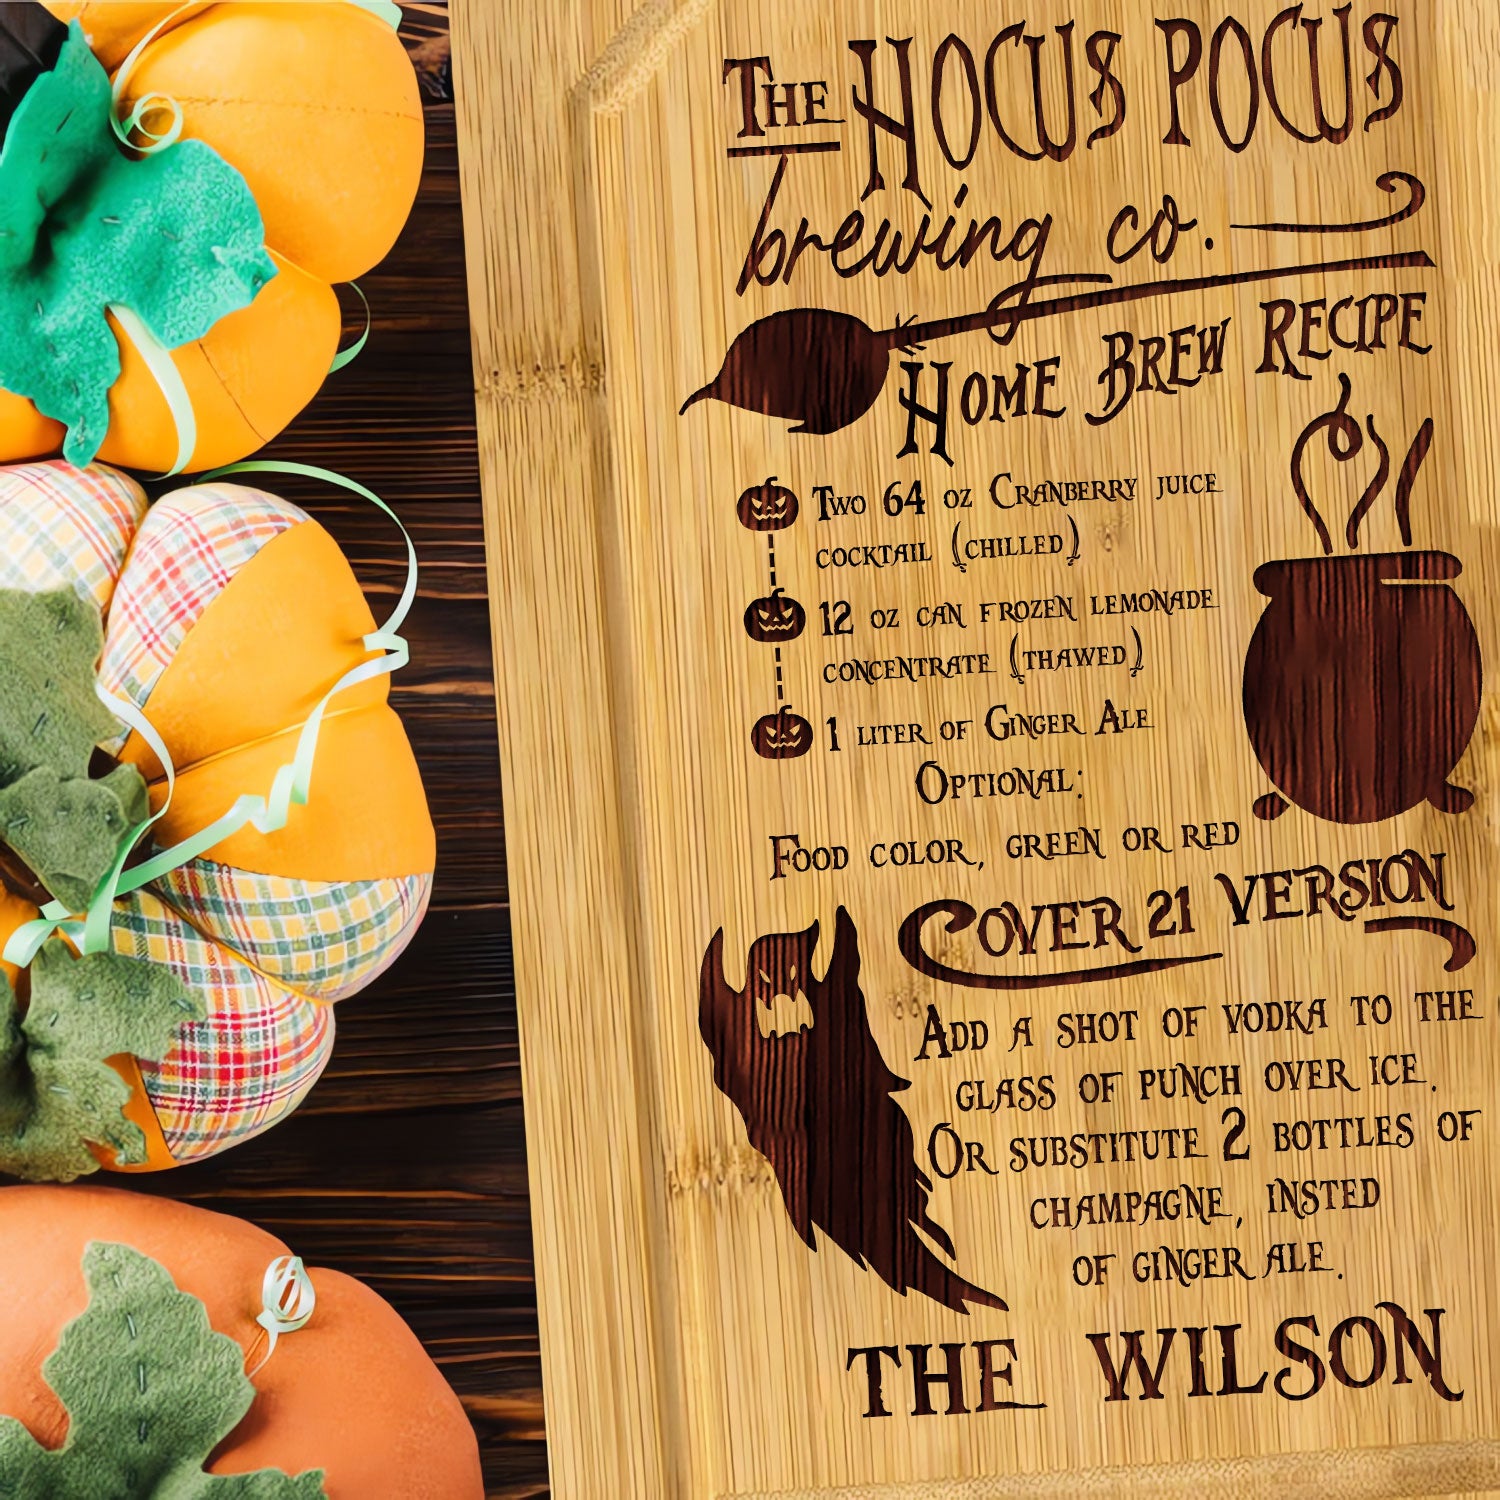 The Hocus Pocus
brewing co.
Home Brew Recipe
Two 64 oz Cranberry juice
cocktail (chilled)
12 oz can frozen lemonade
concentrate (thawed)
1 liter of Ginger Ale
Optional:
Food color, green or red
Cover 21 version
Add a shot of vodka to the
glass of punch over ice.
Or substitute 2 bottles of
champagne, insted
of ginger ale.
THE WILSON